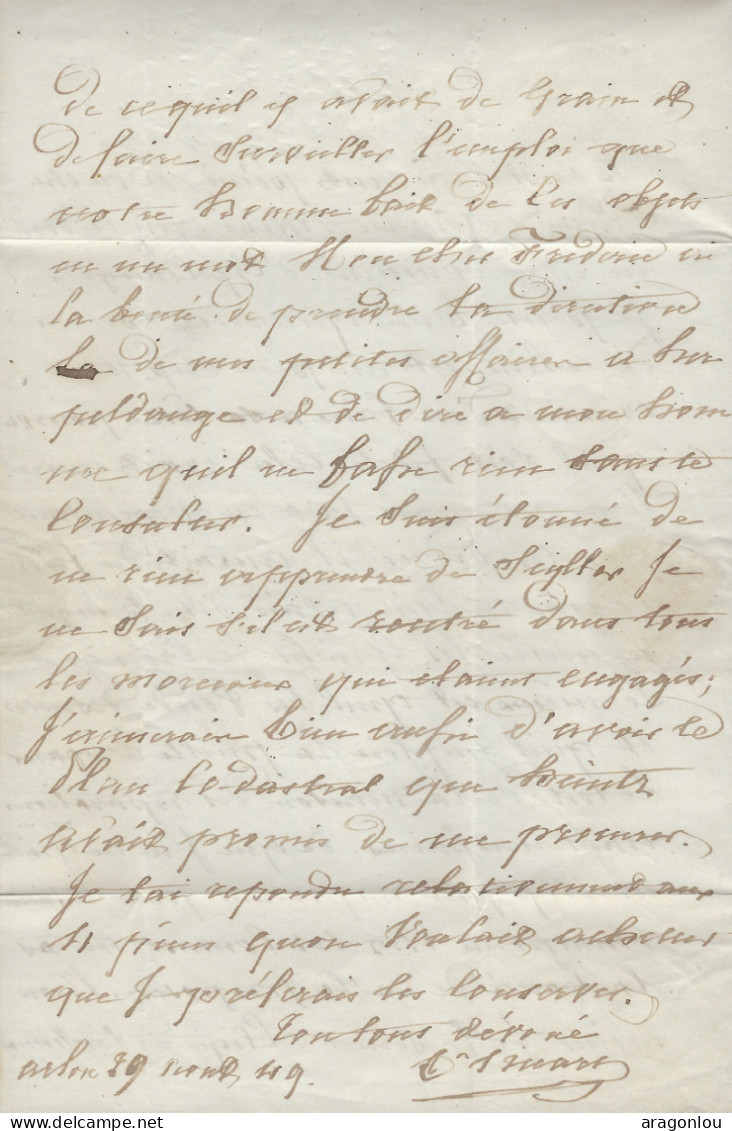 de ce quil y avait de Grain et
de faire Surveiller l'emploi que
notre homme fait de Ces objets
en un mot Mon cher Frederic ai
la bonté de prendre la direction
de mes petites affaires a
et de dire a mon hom
me quil ne fasse rien Sans te
Consulter. Je Suis étonné de
ne rien apprendre de Je
ne Sais S'il est rentré dans tous
les morceaux qui étaient engagés;
J'aimerais bien enfin d'avoir le
Plan Cadastral que Heintz
m'avait promis de me procurer.
Je t'ai repondu relativement aux
11 quon voulait acheter
que Je préférais les Conserver.
Ton tous dévoué
arlon 29 aout 49.